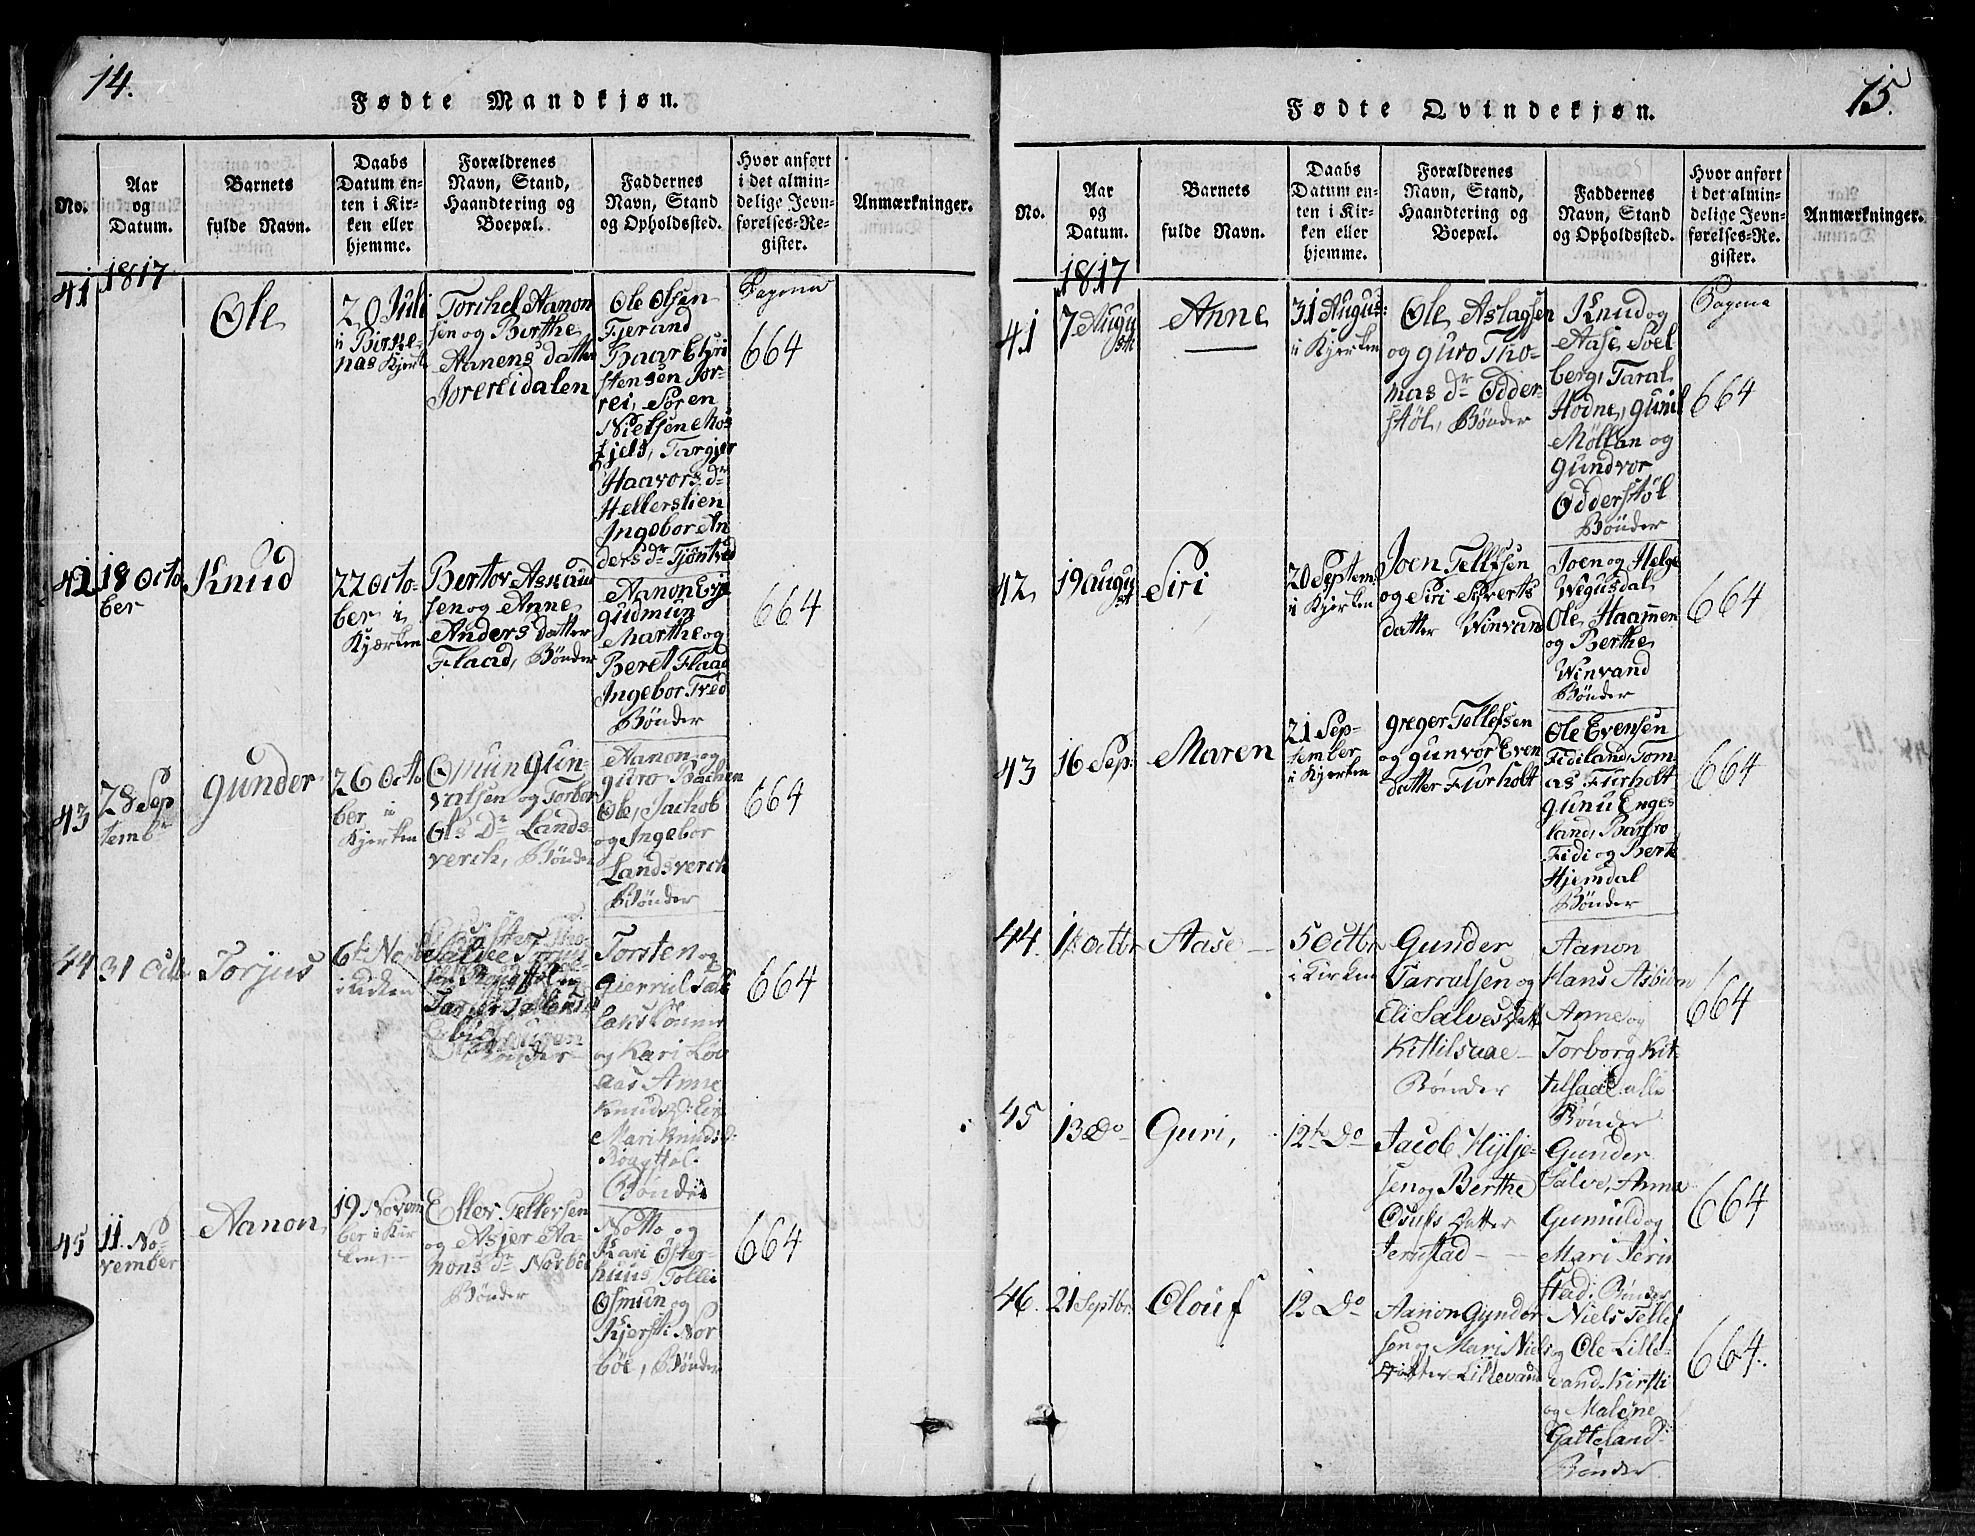 14.
Fødte Mandkjøn.
No.
Aar
og
Datum.
Barnets
fulde Navn.
Daabs
Datum en-
ten i Kir-
ken eller
hjemme.
Forældrenes
Navn, Stand,
Haandtering og
Boepæl.
Faddernes
Navn, Stand
og Opholdssted.
Hvor anført
i det almin-
delige Jevn-
førelses-Re-
gister.
Anmærkninger.
1817
41
Ole
20 Juli
i Birke-
næs Kjerk
Torchel Aanon
sen og Berthe
Aanens datter
Ole Olsen
Fjerand
Baar Chri
stensen
rei, Søren
Nielsen
Targjer
Haavors dr
Hellerslien
Ingebor An
ders dr
Pagina
664
42
18 Octo
ber
Knud
22 Octo-
ber i
Kjærken
Bertov Asnaud
sen og Anne
Anders datter
Flaad, Bønder
Aanon Evje
gudmun
Marthe og
Beret Flaad
Ingebor Tved
Bønder
664
43
28 Sep
tembr
gunder
26 Octo
ber i
Kjerken
Omun Gun-
og Torbor
Ols Dr Lands-
verch, Bønder
Aanon og
guro
Ole, Jachob
og Ingebor
Landsverch
Bønder
664
44
31 Octb
Torjus
6te Novb
i Kirken
Bønder
Torsten og
og Kari Lov
aas Anne
Knudsd:
Mari Knudsd:
Bønder
664
45
11 No-
vember
Aanon
19 Novem
ber i Kir
ken,
Ellev Tellevsen
og Asjer Aa-
nons dr Norbøe
Bønder
Notto og
Kari Øster-
huus, Tollei
Osmun og
Kjersti Nor
bøe, Bønder
664
15.
Fødte Qvindekjøn.
No.
Aar
og
Datum.
Barnets
fulde Navn.
Daabs
Datum en-
ten i Kir-
ken eller
hjemme.
Forældrenes
Navn, Stand,
Haandtering og
Boepæl.
Faddernes
Navn, Stand
og Opholdssted.
Hvor anført
i det almin-
delige Jevn-
førelses-Re-
gister.
Anmærkninger.
1817
41
7 Augu
st
Anne
31 Augus:
i Kjerken
Ole Aslagsen
og guro Tho-
mas dr Odder-
støl, Bønder
Knud og
Aase Soel
berg, Taral
Hodne, gunil
Møllan og
gundvor
Odderstøl
Bønder
Pagina
664
42
19 augu
st
Siri
20 Septem:
i Kjerken
Joen Tellefsen
og Siri Siverts
datter Vinvand
Joen og Helge
Wegusdal
Ole, Haagnen
og Berthe
Winvand
Bønder
664
43
16 Sep:
Maren
21 Sep-
tember
i Kjerken
greger Tellefsen
og gunvor Even
datter Furholt
Ole Evensen
Fidiland, Tom-
as Furholt
gunu Enges
land, Barbro
Fidi og Berte
Hjemdal
Bønder
664
44.
1te Octbr
Aase
5 Octbr
i Kirken
Gunder
Tarralsen og
Eli Salves Datt
Kittilsaae
Bønder
Aanon
Hans Asbiørn
Anne og
Torborg Kit-
tilsaae alle
Bønder
664
45
13 Do
Guri,
12te Do
Jacob Hylje-
sen og Berthe
Osufs Datter
Jernstad
Gunder
Salve, Anna
Gunnild og
Mari Jern
stad: Bønder
664
46.
21 Septbr
Olouf
12 Do
Aanon Gunder
sen og Mari Niels
Datter Lillevand
Niels Tellef
og Ole Lille-
vand, Kirsti
og Malene
Gatteland:
Bønder
664.